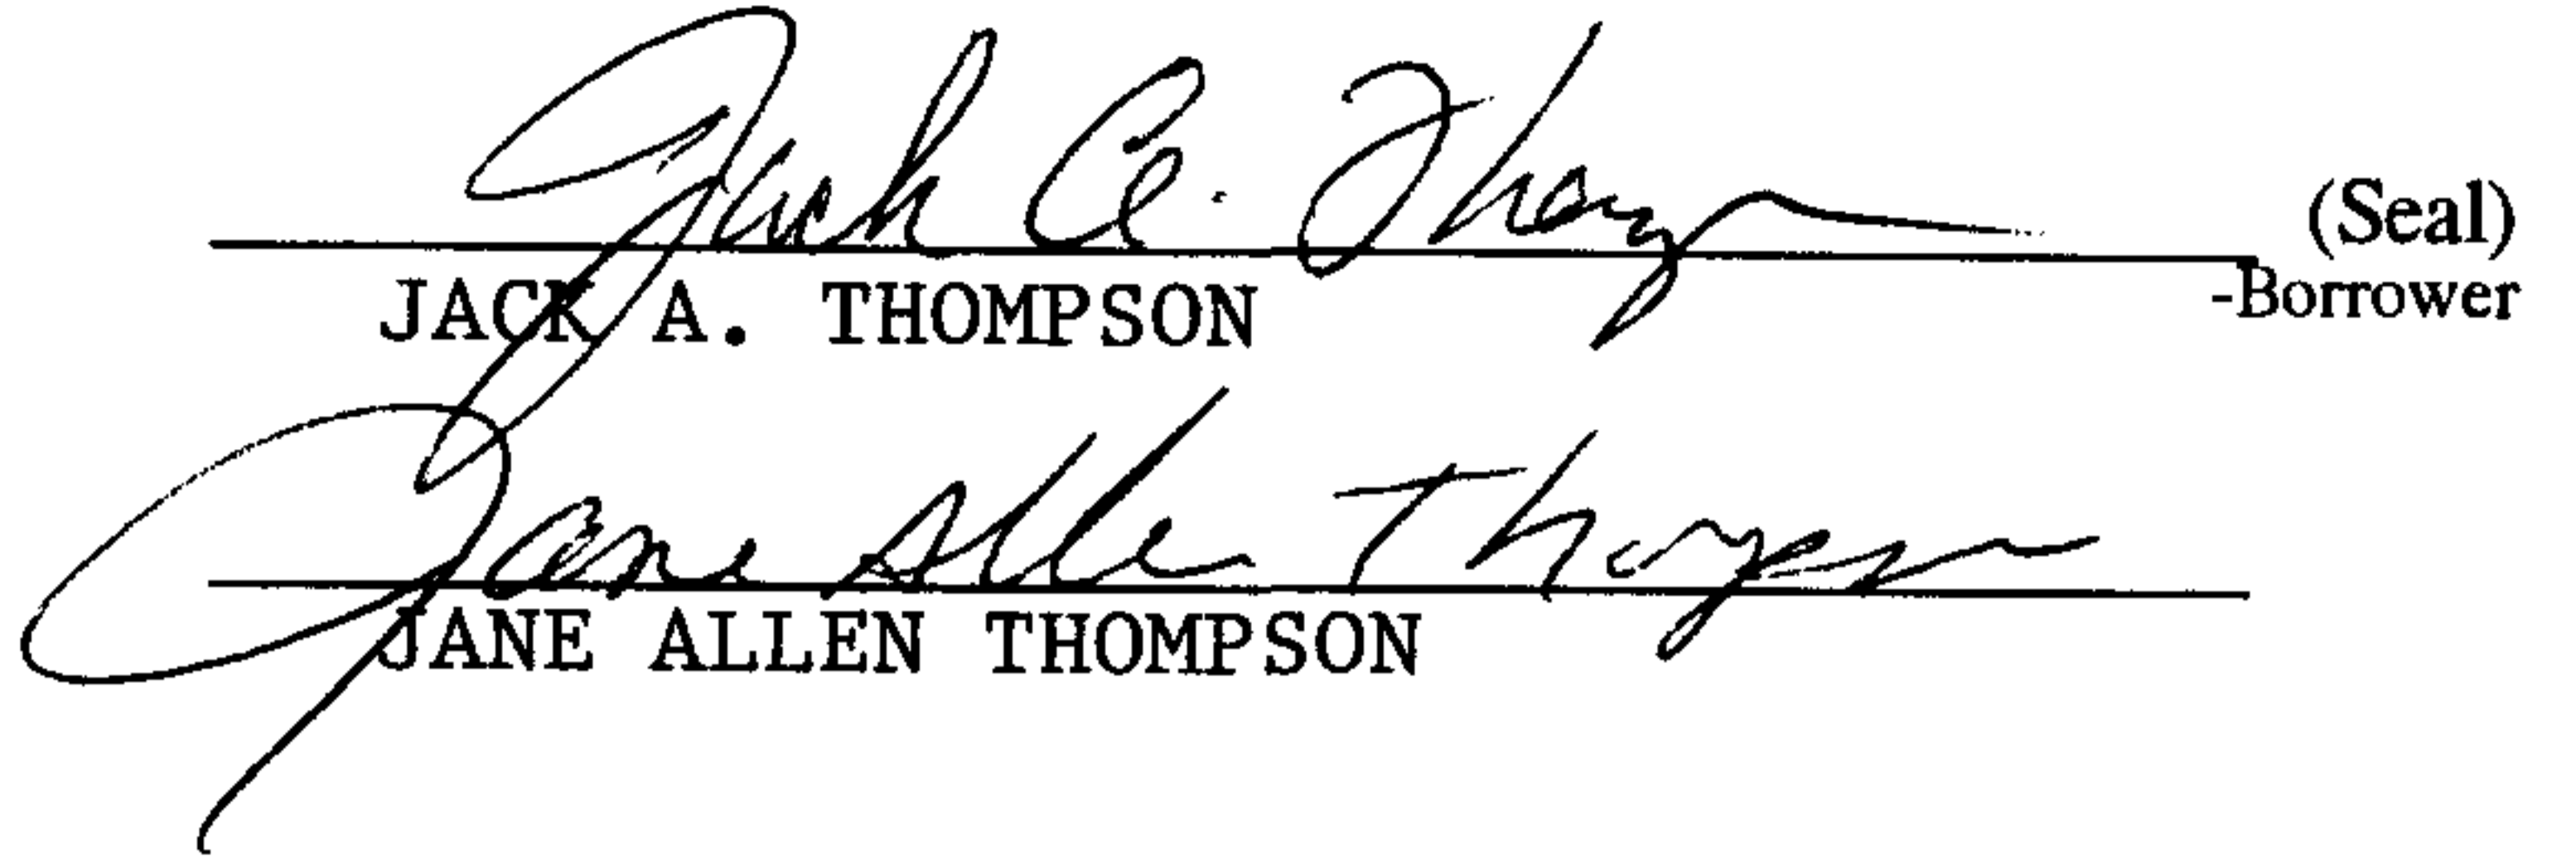 Jack A. Thompson (Seal)
JACK A. THOMPSON -Borrower
Jane Allen Thompson
JANE ALLEN THOMPSON